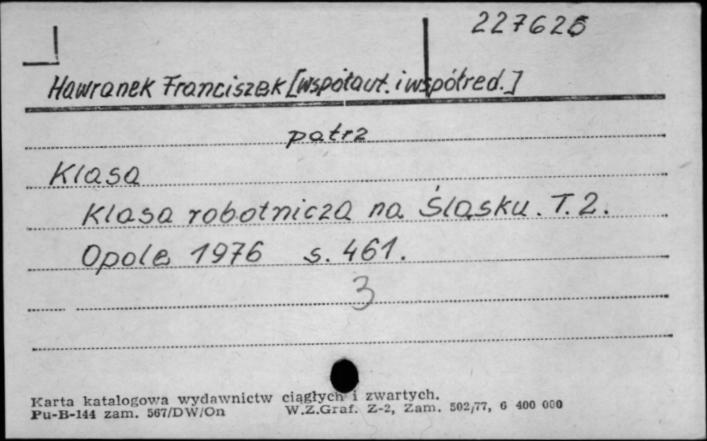 227625
Hawranek Franciszek [współaut. i współred.]
patrz
Klasa
Klasa robotnicza na Śląsku. T. 2.
Opole 1976 s. 461.
3
Karta katalogowa wydawnictw ciągłych i zwartych.
Pu-B-144 zam. 567/DW/On W.Z.Graf. Z-2, Zam. 502/77, 6 400 000